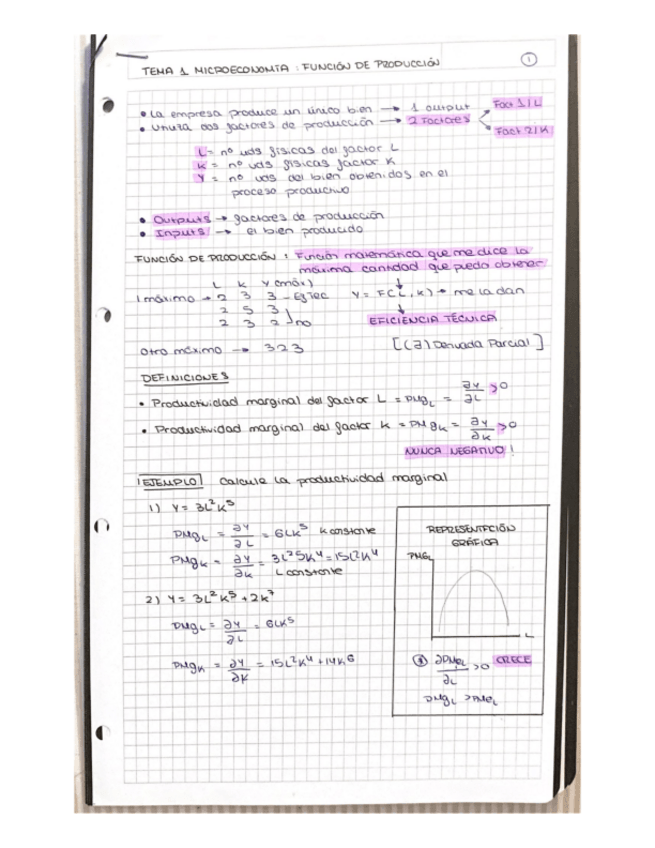 TEMA 1 MICROECONOMÍA : FUNCIÓN DE PRODUCCIÓN
1
• La empresa produce un único bien → 1 output
Fact 1 / L
• Utiliza dos factores de producción → 2 Factores
Fact 2 / K
L = nº uds físicas del factor L
K = nº uds físicas factor K
Y = nº uds del bien obtenidos en el
proceso productivo
• Outputs → factores de producción
• Inputs → el bien producido
FUNCIÓN DE PRODUCCIÓN : Función matemática que me dice la
máxima cantidad que puedo obtener
L K Y (máx)
1 máximo → 2 3 3 - Ef Tec Y = F(L, K) → me la dan
2 5 3
2 3 2 no
EFICIENCIA TÉCNICA
Otro máximo → 3 2 3
[(∂) Derivada Parcial]
DEFINICIONES
• Productividad marginal del factor L = PMgL = ∂Y/∂L > 0
• Productividad marginal del factor K = PMgK = ∂Y/∂K > 0
NUNCA NEGATIVO !
EJEMPLO Calcule la productividad marginal
1) Y = 3L²K⁵
PMgL = ∂Y/∂L = 6LK⁵ K constante
PMgK = ∂Y/∂K = 3L²5K⁴ = 15L²K⁴
L constante
2) Y = 3L²K⁵ + 2K⁷
PMgL = ∂Y/∂L = 6LK⁵
PMgK = ∂Y/∂K = 15L²K⁴ + 14K⁶
REPRESENTACIÓN
GRÁFICA
PMgL
L
∂PMeL/∂L > 0 CRECE
PMgL > PMeL